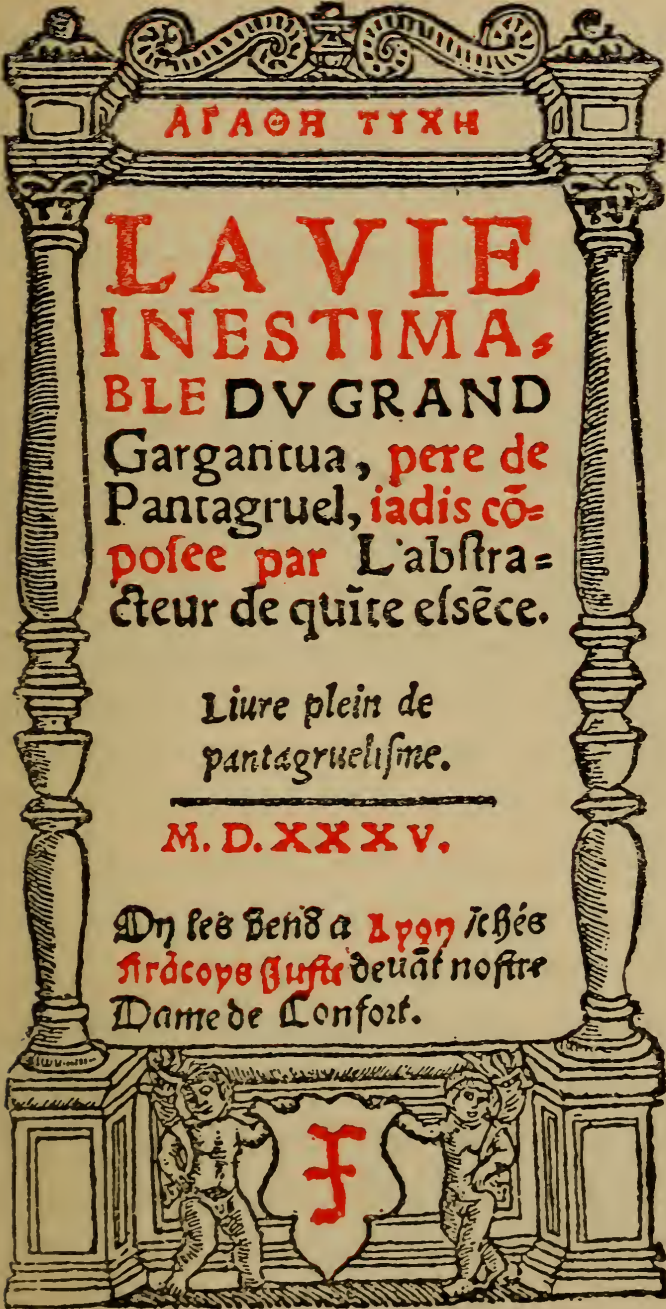 ΑΓΑΘΗ ΤΥΧΗ
LA VIE
INESTIMA⸗
BLE DV GRAND
Gargantua, pere de
Pantagruel, iadis cõ⸗
poſee par L'abſtra⸗
cteur de quĩte eſsẽce.
Liure plein de
pantagrueliſme.
M. D. XXXV.
On les vend a Lyon / chés
Frãcoys Juſte devãt noſtre
Dame de Confort.
F